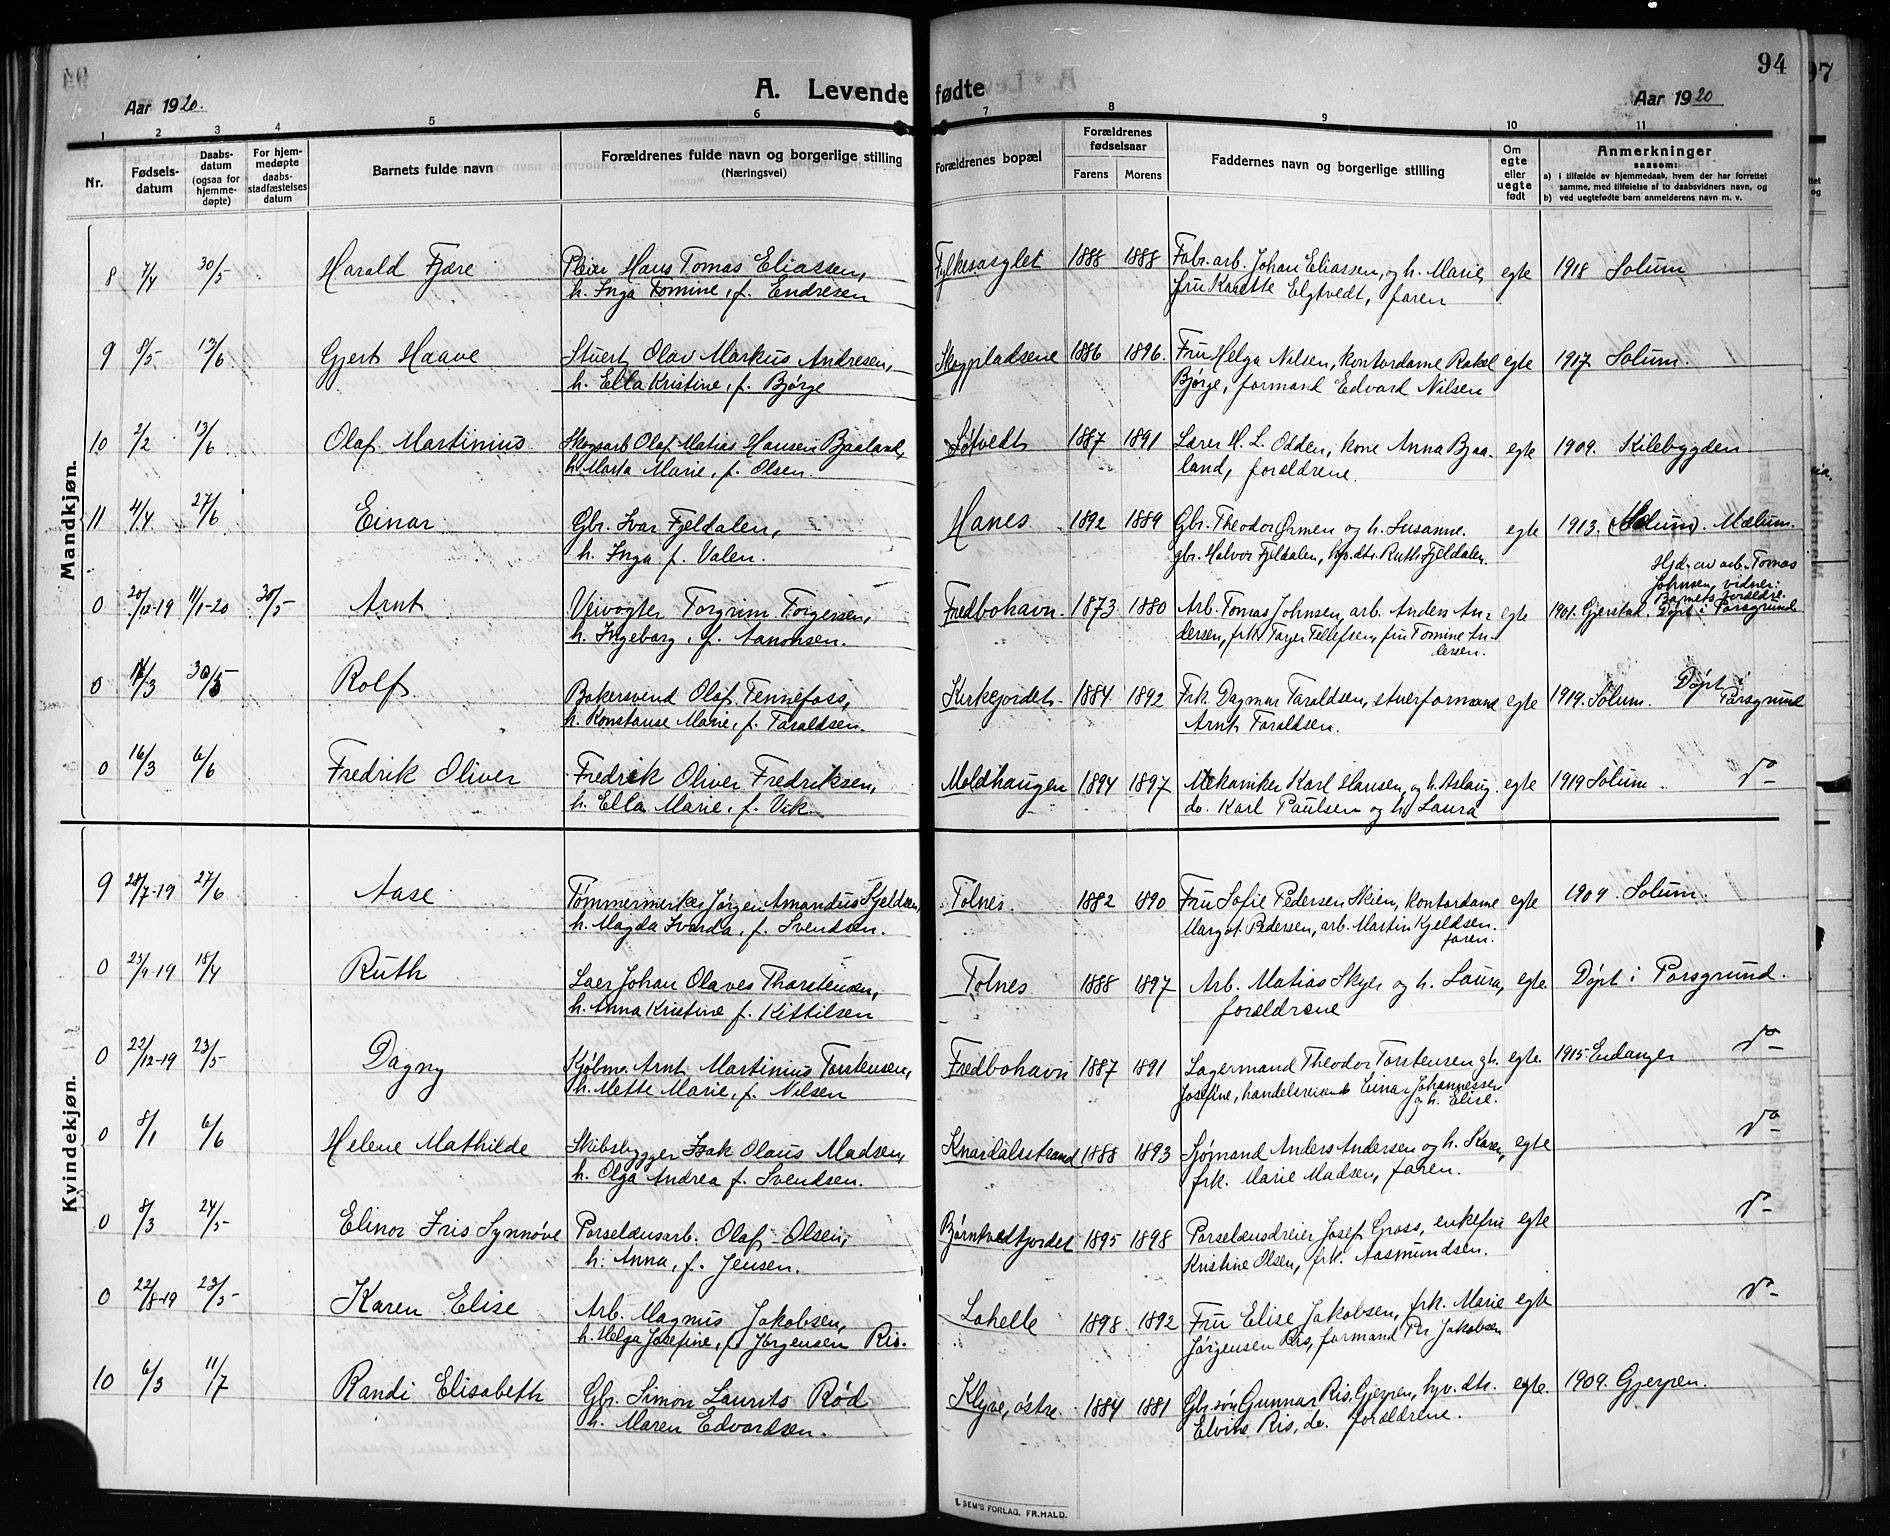 94
A. Levende fødte
Aar 1920. Aar 1920
1 2 3 4 5 6 7 8 9 10 11
Nr. Fødselsdatum Daabsdatum (ogsaa for hjemmedøpte) For hjemmedøpte daabsstadfæstelses datum Barnets fulde navn Forældrenes fulde navn og borgerlige stilling (Næringsvei) Forældrenes bopæl Forældrenes fødselsaar Farens Morens Faddernes navn og borgerlige stilling Om egte eller uegte født Anmerkninger saasom:
a) I tilfælde av hjemmedaab, hvem der har forrettet samme, med tilføielse af to daabsvidners navn, og
b) ved uegtefødte barn anmelderens navn m. v.
Mandkjøn.
8 7/4 30/5 Harald Fjære Pleier Hans Tomas Eliassen, Fylkesasylet 1888 1888 Fabr. arb. Johan Eliassen, og h. Marie, egte 1918 Solum
h. Inga Tomine, f. Endresen fru Elgtvedt, faren
9 8/5 13/6 Gjert Haave Stuert Olav Markus Andresen, 1886 1896. Fru Helga Nilsen, kontordame Rakel egte 1917 Solum.
h. Ella Kristine, f. Bjørge Bjørge, formand Edvard Nilsen
10 2/2 13/6 Olaf Martinius Skogsarb Olaf Matias Hansen Baaland, Løtvedt 1887 1891 Lærer H. L. Odden, kone Anna Bjaa- egte 1909. Kilebygden
h. Marta Marie, f. Olsen. land, forældrene.
11 4/4 27/6 Einar Gbr. Ivar Fjeldalen, Hanes 1892 1889 Gbr. Theodor Ørmen og h. Susanne. egte 1913. Mælum.
h. Inga f. Valen. gbr. Halvor Fjeldalen, hv. dtr. Ruth Fjeldalen.
Hjd. av arb. Tomas
Johnsen, vidner:
Barnets forældre.
0 20/12-19 11/1-20 30/5 Arnt Veivogter Torgrim Torgersen, Fredbohavn. 1873 1880 Arb. Tomas Johnsen, arb. Anders An- egte 1901. Gjerstad. Døpt i Porsgrund
h. Ingeborg, f. Aanonsen. dersen, frk Tellefsen, fru Tomine An-
dersen.
0 /3 30/5 Rolf Bakersvend Olaf Tennefoss, Kirkejordet 1884 1892 Frk. Dagmar Taraldsen, stuerformand egte 1919. Solum. Døpt i Porsgrund
h. Konstanse Marie, f. Taraldsen. Arnt Taraldsen.
0 16/3 6/6 Fredrik Oliver Fredrik Oliver Fredriksen, Moldhaugen 1894 1897 Mekaniker Karl Hansen, og h. Aslaug. egte 1919 Solum. do
h. Ella Marie, f. Vik. do. Karl Paulsen og h. Laura
Kvindekjøn.
9 28/7-19 27/6 Aase Tømmermerker Jørgen Amandus Kjeldsen, Tolnes. 1882 1890 Fru Sofie Pedersen Skien, kontordame egte 1909. Solum.
h. Magda Svarda, f. Svendsen. Margot. Pedersen, arb. Martin Kjeldsen.
faren.
0 23/9-19 18/4 Ruth Laer Johan Olaves Thorstensen, Tolnes 1888 1897 Arb. Matias Skyer og h. Laura, egte. Døpt i Porsgrund.
h. Anna Kristine f. Kittilsen forældrene
0 22/12-19 23/5 Dagny Kjøbm. Arnt Martinius Torstensen, Fredbohavn 1887 1891 Lagermand Theodor Torstensen og h. egte. 1915. Eidanger do
h. Mette Marie, f. Nilsen Josefine, handelsreisende Einar Johannessen
og h. Elise.
0 8/1 6/6 Helene Mathilde Skibsbygger Isak Olaus Madsen, Knardalsstrand 1888 1893 Sjømand Anders Andersen og h. Karen, egte do
h. Olga Andrea f. Svendsen. frk. Marie Madsen, faren.
0 8/3 24/5 Elinor Iris Synnøve Porselænsarb. Olaf Olsen, Bjørntvedtjordet 1895 1898 Porselænsdreier Josef Grass, enkefru egte do
h. Anna, f. Jensen. Kristine Olsen, frk. Aasmundsen.
0 22/8-19 23/5 Karen Elise Arb. Magnus Jakobsen, Lahelle 1898. 1892 Fru Elise Jakobsen, frk. Marie egte do
h. Helga Josefine, f. Jørgensen Ris. Jørgensen Ris, formand Jakobsen
10 6/3 11/7 Randi Elisabeth Gbr. Simon Laurits Rød Klyve, østre 1884 1881 Gbr. søn Gunnar Ris, Gjerpen, hv. dtr. egte. 1909. Gjerpen.
h. Maren Edvardsen. Elvine Ris, do. forældrene.
E. SEM'S FORLAG. FR.HALD.
97